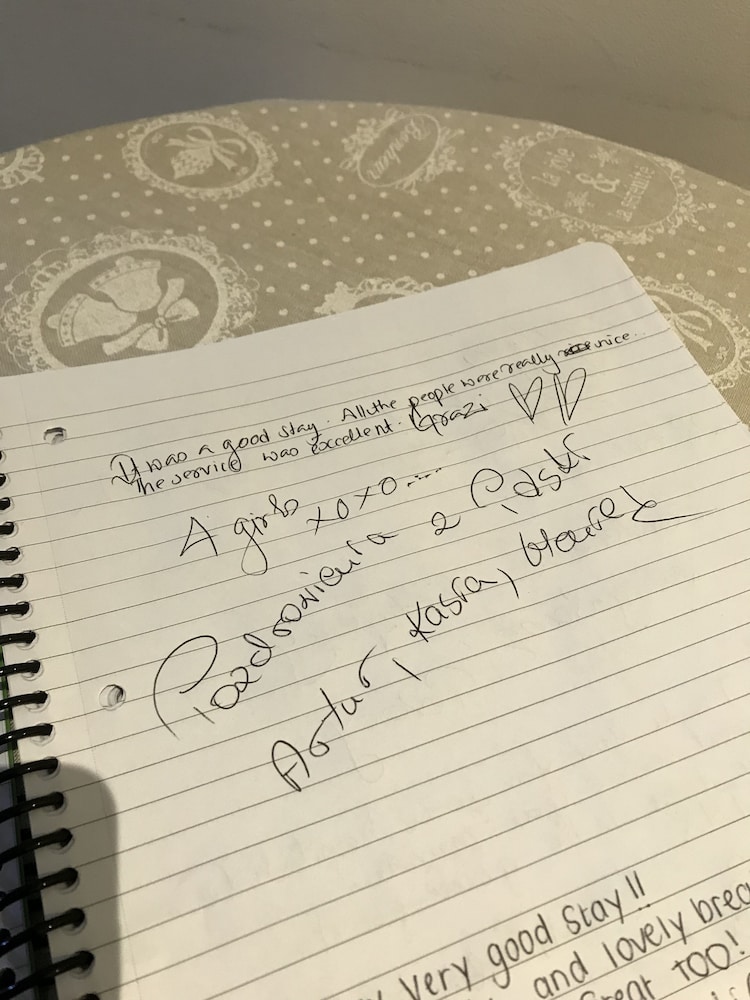 Bonheur
la joie
&
la sérénité
It was a good stay. All the people were really nice...
The service was excellent. Grazi
A girls xoxo....
Pozdrowienia z Polski
Artur, Kasia,
Very good stay!!
and lovely
Great TOO!